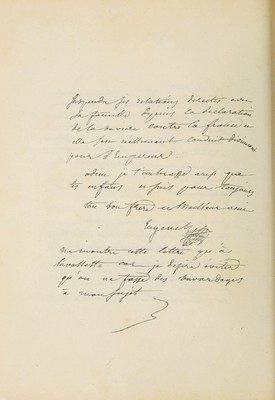 suspendu ses relations directes avec
sa famille depuis la déclaration
de la baviere contre la france
elle s'en
pour l'Empereur
adieu je t'embrasse ainsi que
tes enfans et suis pour toujours
ton bon frère et meilleur ami
Eugène
ne montre cette lettre qu'à
lavallette car je desire eviter
qu'on ne fasse des bavardages
à mon sujet